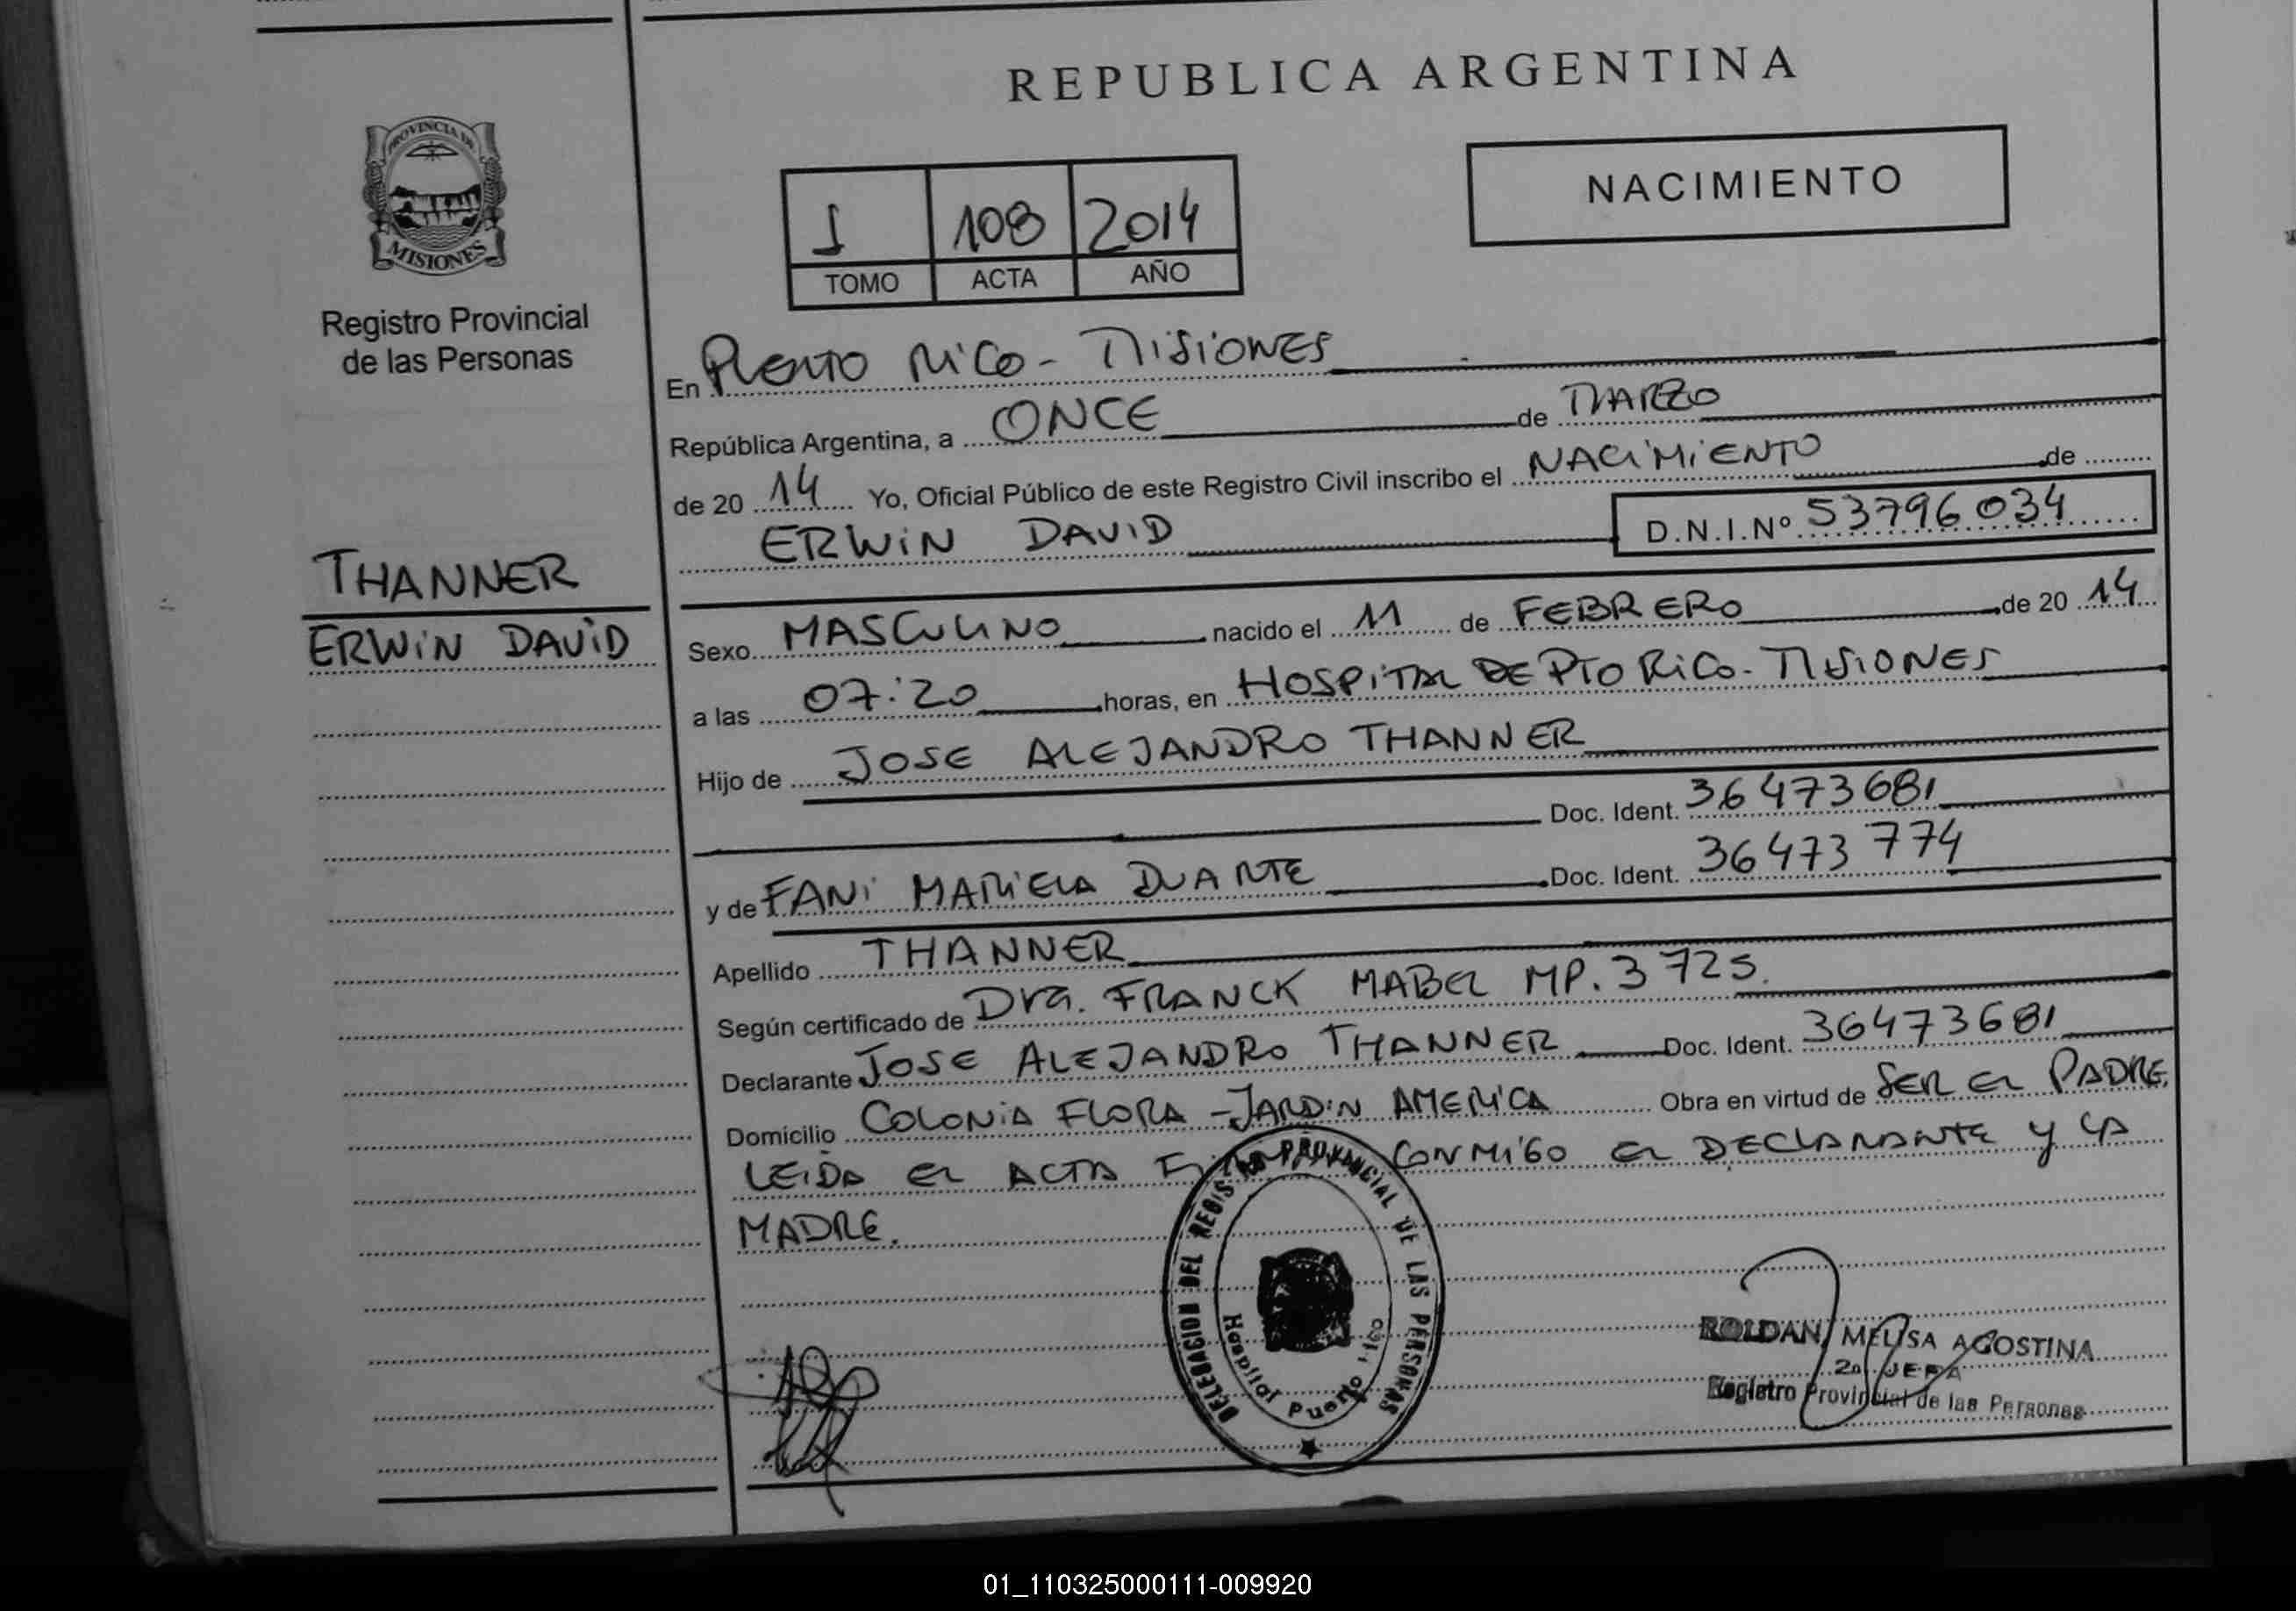 REPUBLICA ARGENTINA
PROVINCIA DE
MISIONES
Registro Provincial
de las Personas
NACIMIENTO
I 108 2014
TOMO ACTA AÑO
En PUERTO RICO - MISIONES
República Argentina, a ONCE de MARZO
de 20 14 Yo, Oficial Público de este Registro Civil inscribo el NACIMIENTO de
ERWIN DAVID D.N.I.Nº 53796034
THANNER
ERWIN DAVID
Sexo MASCULINO nacido el 11 de FEBRERO de 20 14
a las 07:20 horas, en HOSPITAL DE PTO RICO - MISIONES
Hijo de JOSE ALEJANDRO THANNER
Doc. Ident. 36473681
y de FANI MARIELA DUARTE Doc. Ident. 36473774
Apellido THANNER
Según certificado de Dra. FRANCK MABEL MP. 3725.
Declarante JOSE ALEJANDRO THANNER Doc. Ident. 36473681
Domicilio COLONIA FLORA - JARDIN AMERICA Obra en virtud de SER EL PADRE.
LEIDA EL ACTA CONMIGO EL DECLARANTE Y LA
MADRE.
DELEGACION DEL REGISTRO PROVINCIAL DE LAS PERSONAS
Hospital Puerto rico
ROLDAN, MELISA AGOSTINA
2a JEFA
Registro Provincial de las Personas
01_110325000111-009920